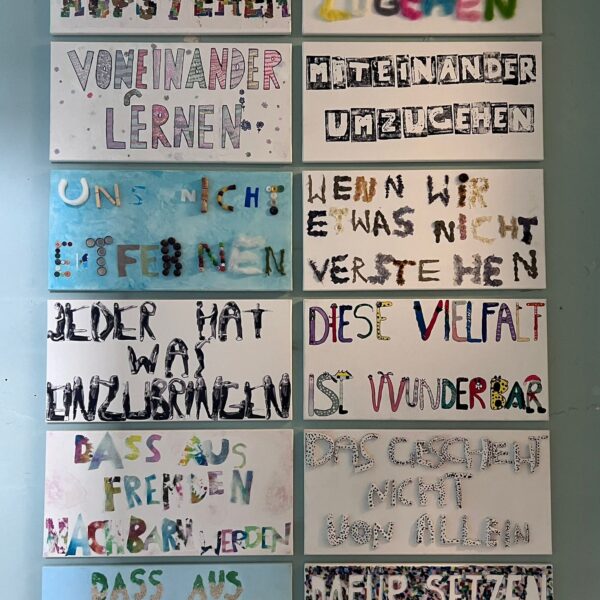 ZUGEHEN
VONEINANDER
LERNEN
MITEINANDER
UMZUGEHEN
UNS NICHT
ENTFERNEN
WENN WIR
ETWAS NICHT
VERSTEHEN
JEDER HAT
WAS
EINZUBRINGEN
DIESE VIELFALT
IST WUNDERBAR
DASS AUS
FREMDEN
NACHBARN WERDEN
DAS GESCHIEHT
NICHT
VON ALLEIN
DASS AUS
DAFÜR SETZEN